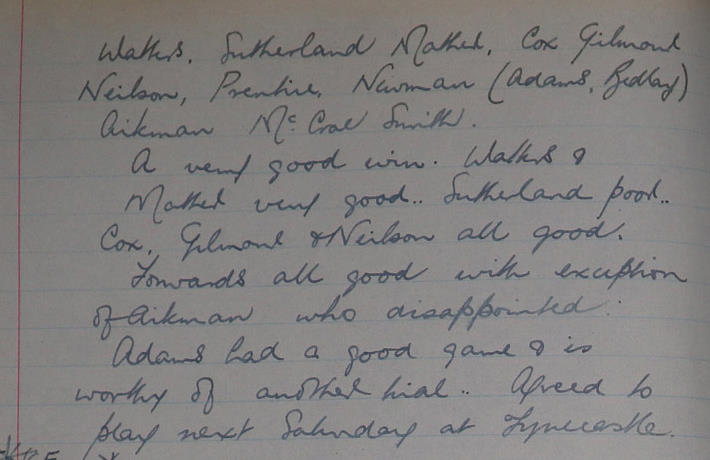 Watters, Sutherland Mather, Cox Gilmour
Neilson, Prentice, Newman (Adams, Bedlay)
Aikman McCrae Smith.
A very good win. Watters &
Mather very good.. Sutherland poor..
Cox, Gilmour & Neilson all good.
Forwards all good with exception
of Aikman who disappointed.
Adams had a good game & is
worthy of another trial.. Agreed to
play next Saturday at Tynecastle.